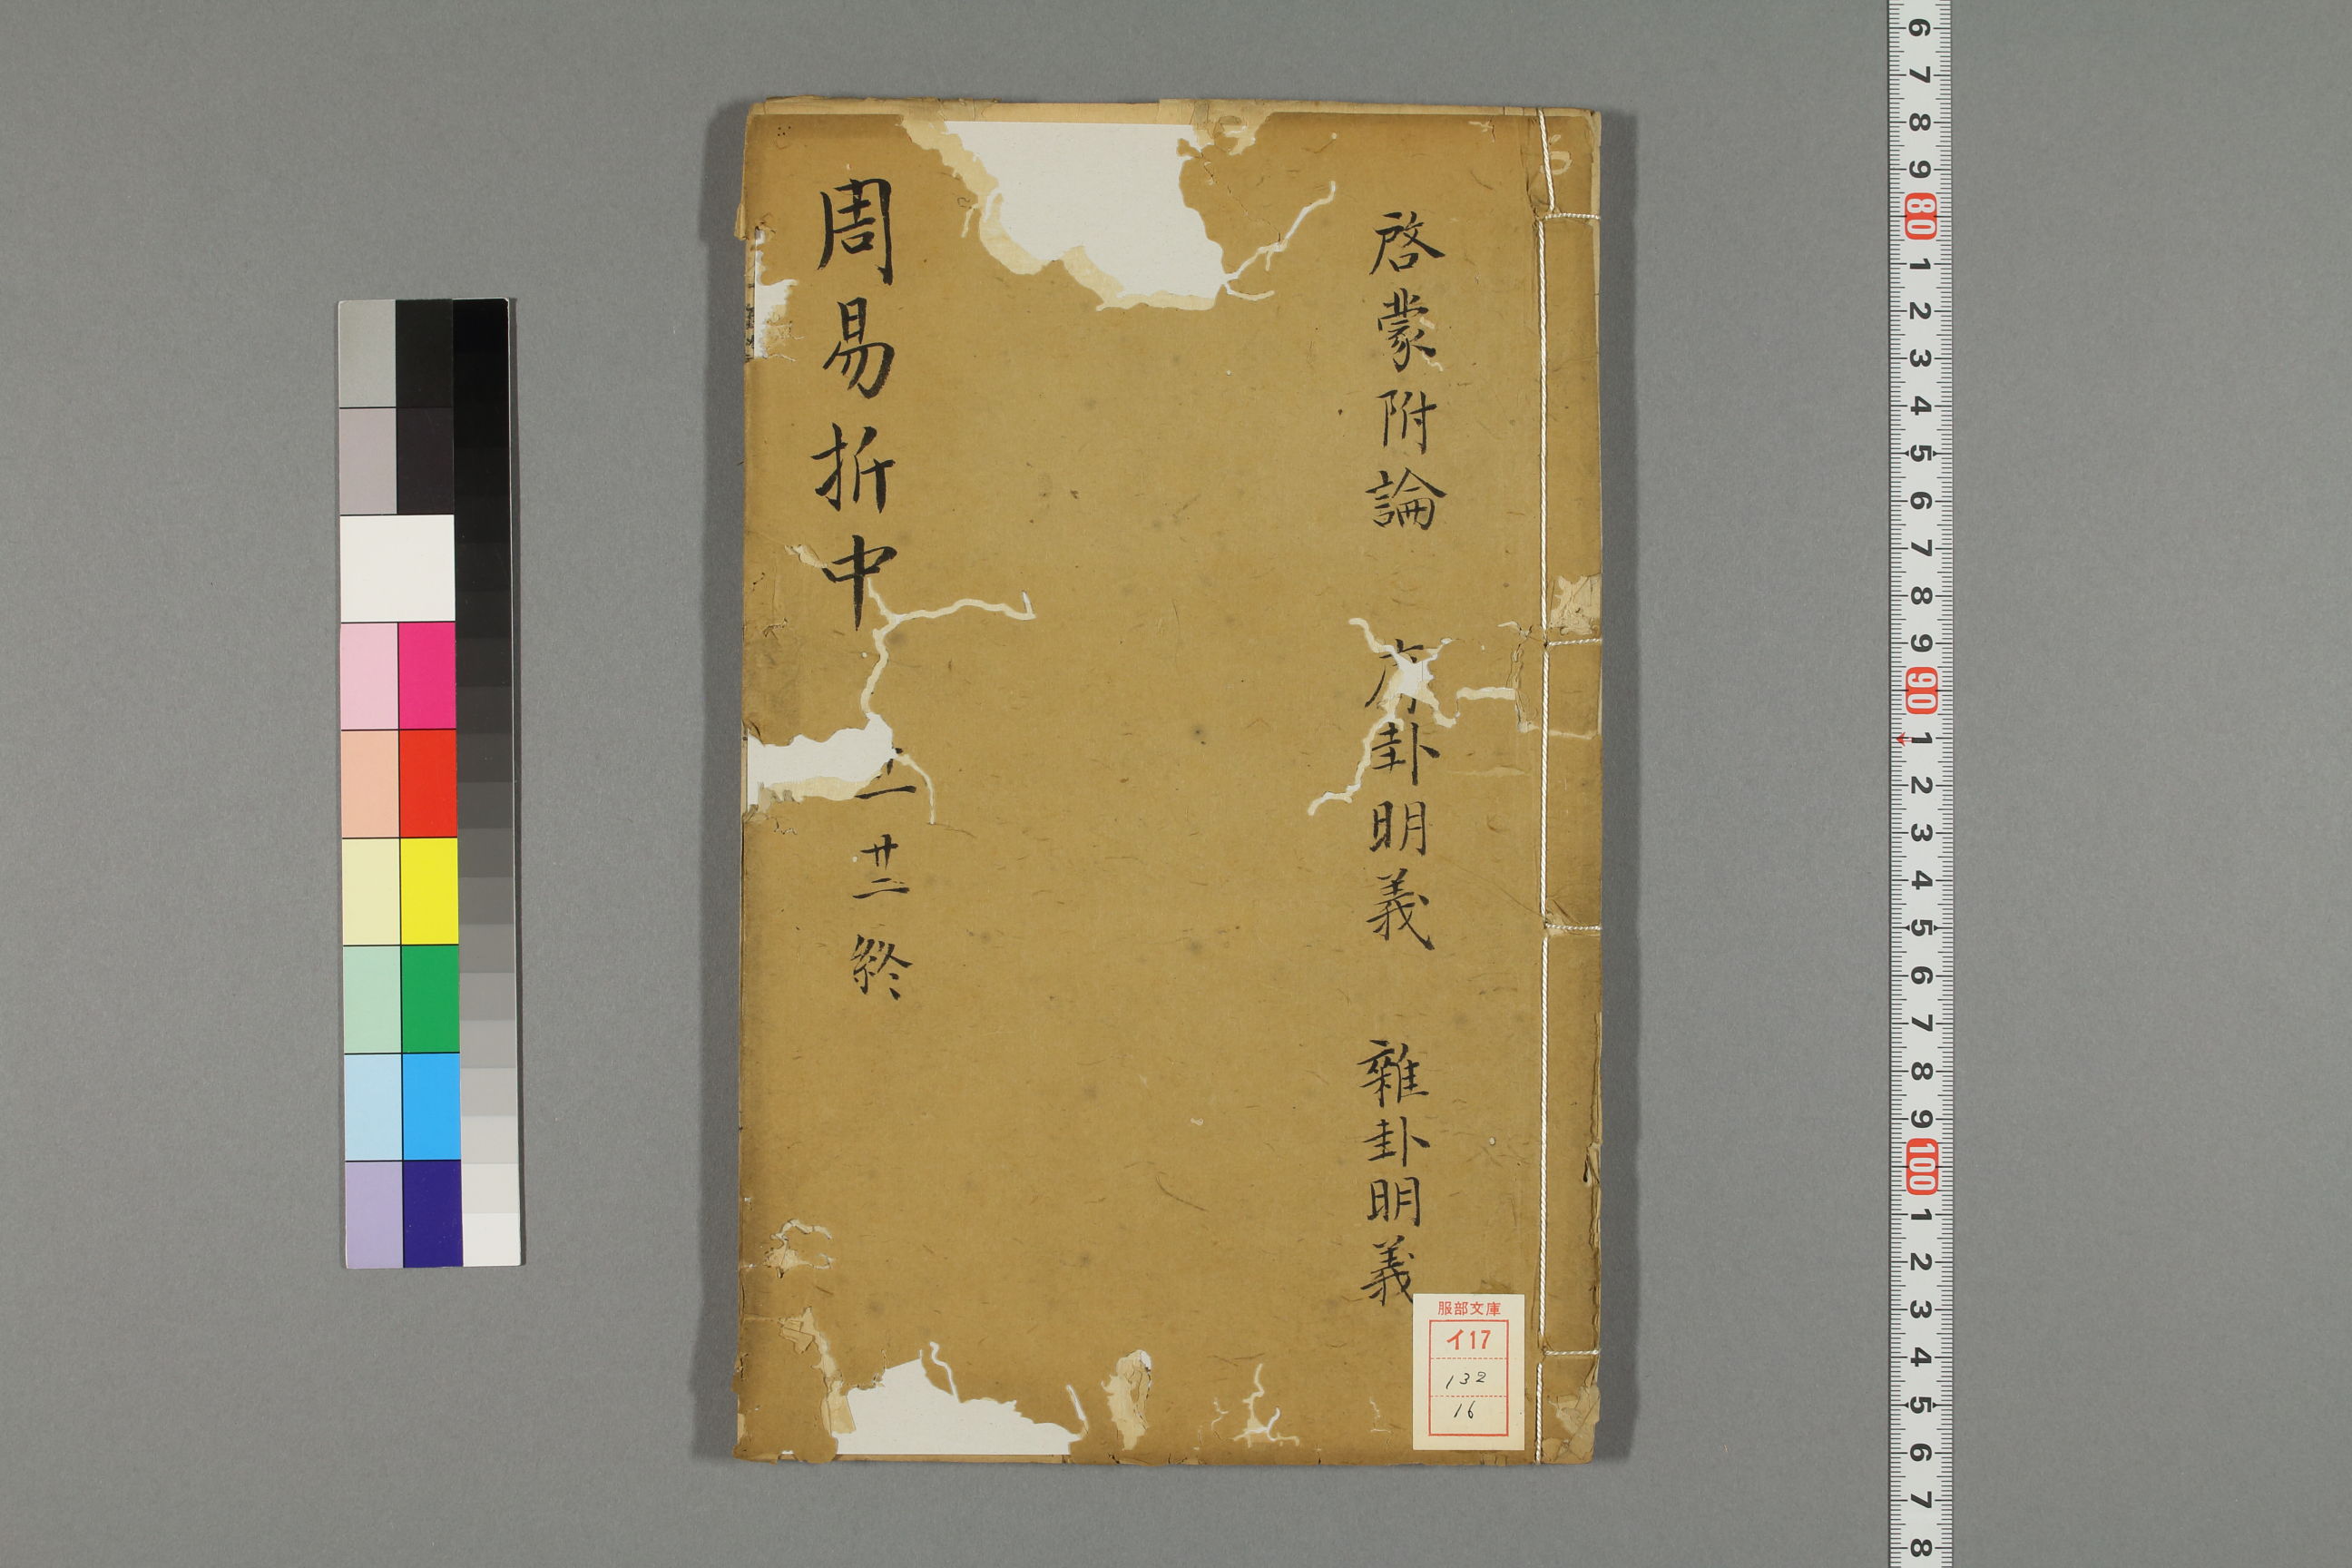 啓蒙附論 序卦明義 雜卦明義
周易折中
一 廿二 終
服部文庫
イ17
132
16
6 7 8 9 80 1 2 3 4 5 6 7 8 9 90 1 2 3 4 5 6 7 8 9 100 1 2 3 4 5 6 7 8